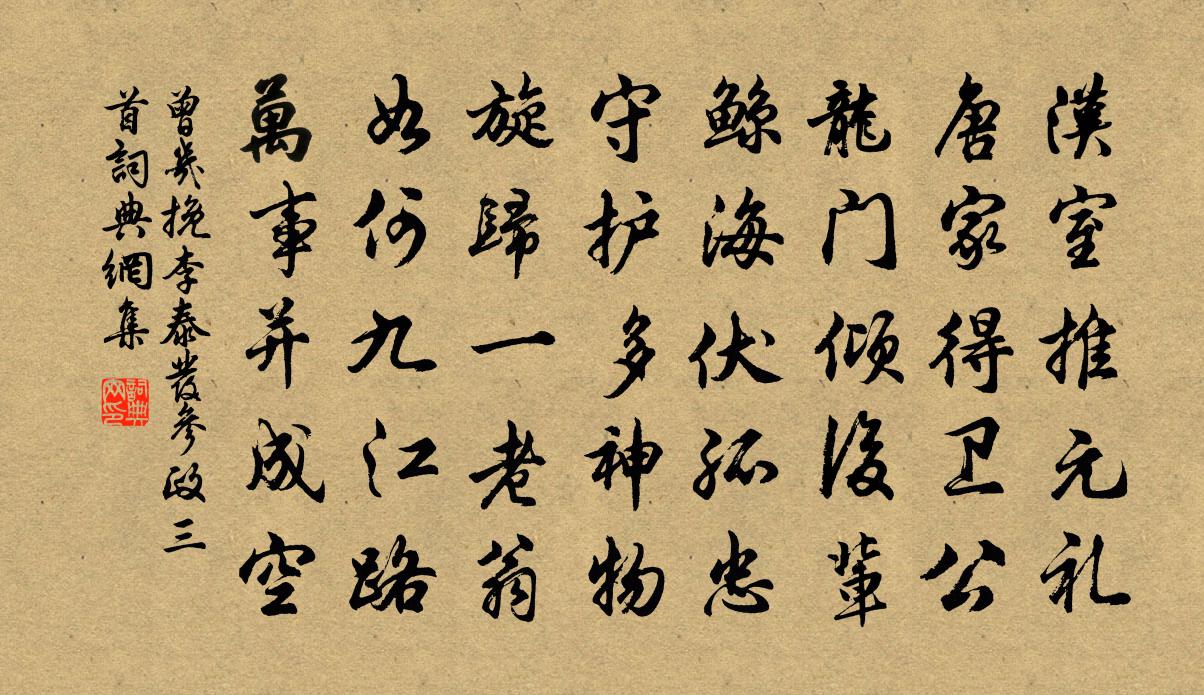 漢室推元礼
唐家得卫公
龍门倾後輩
鲸海伏孤忠
守护多神物
旋歸一老翁
如何九江路
萬事并成空
曾幾挽李泰發參政三
首詞典網集
詞典
网印